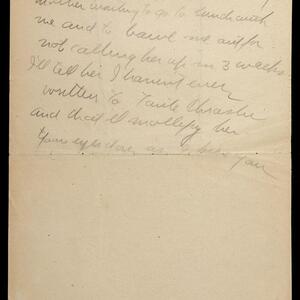 mother wanting to go to lunch with
me and to bawl me out for
not calling her up in 3 weeks
I'll tell her I haven't even
written to Tante Thrasher
and that'll mollify her
Your